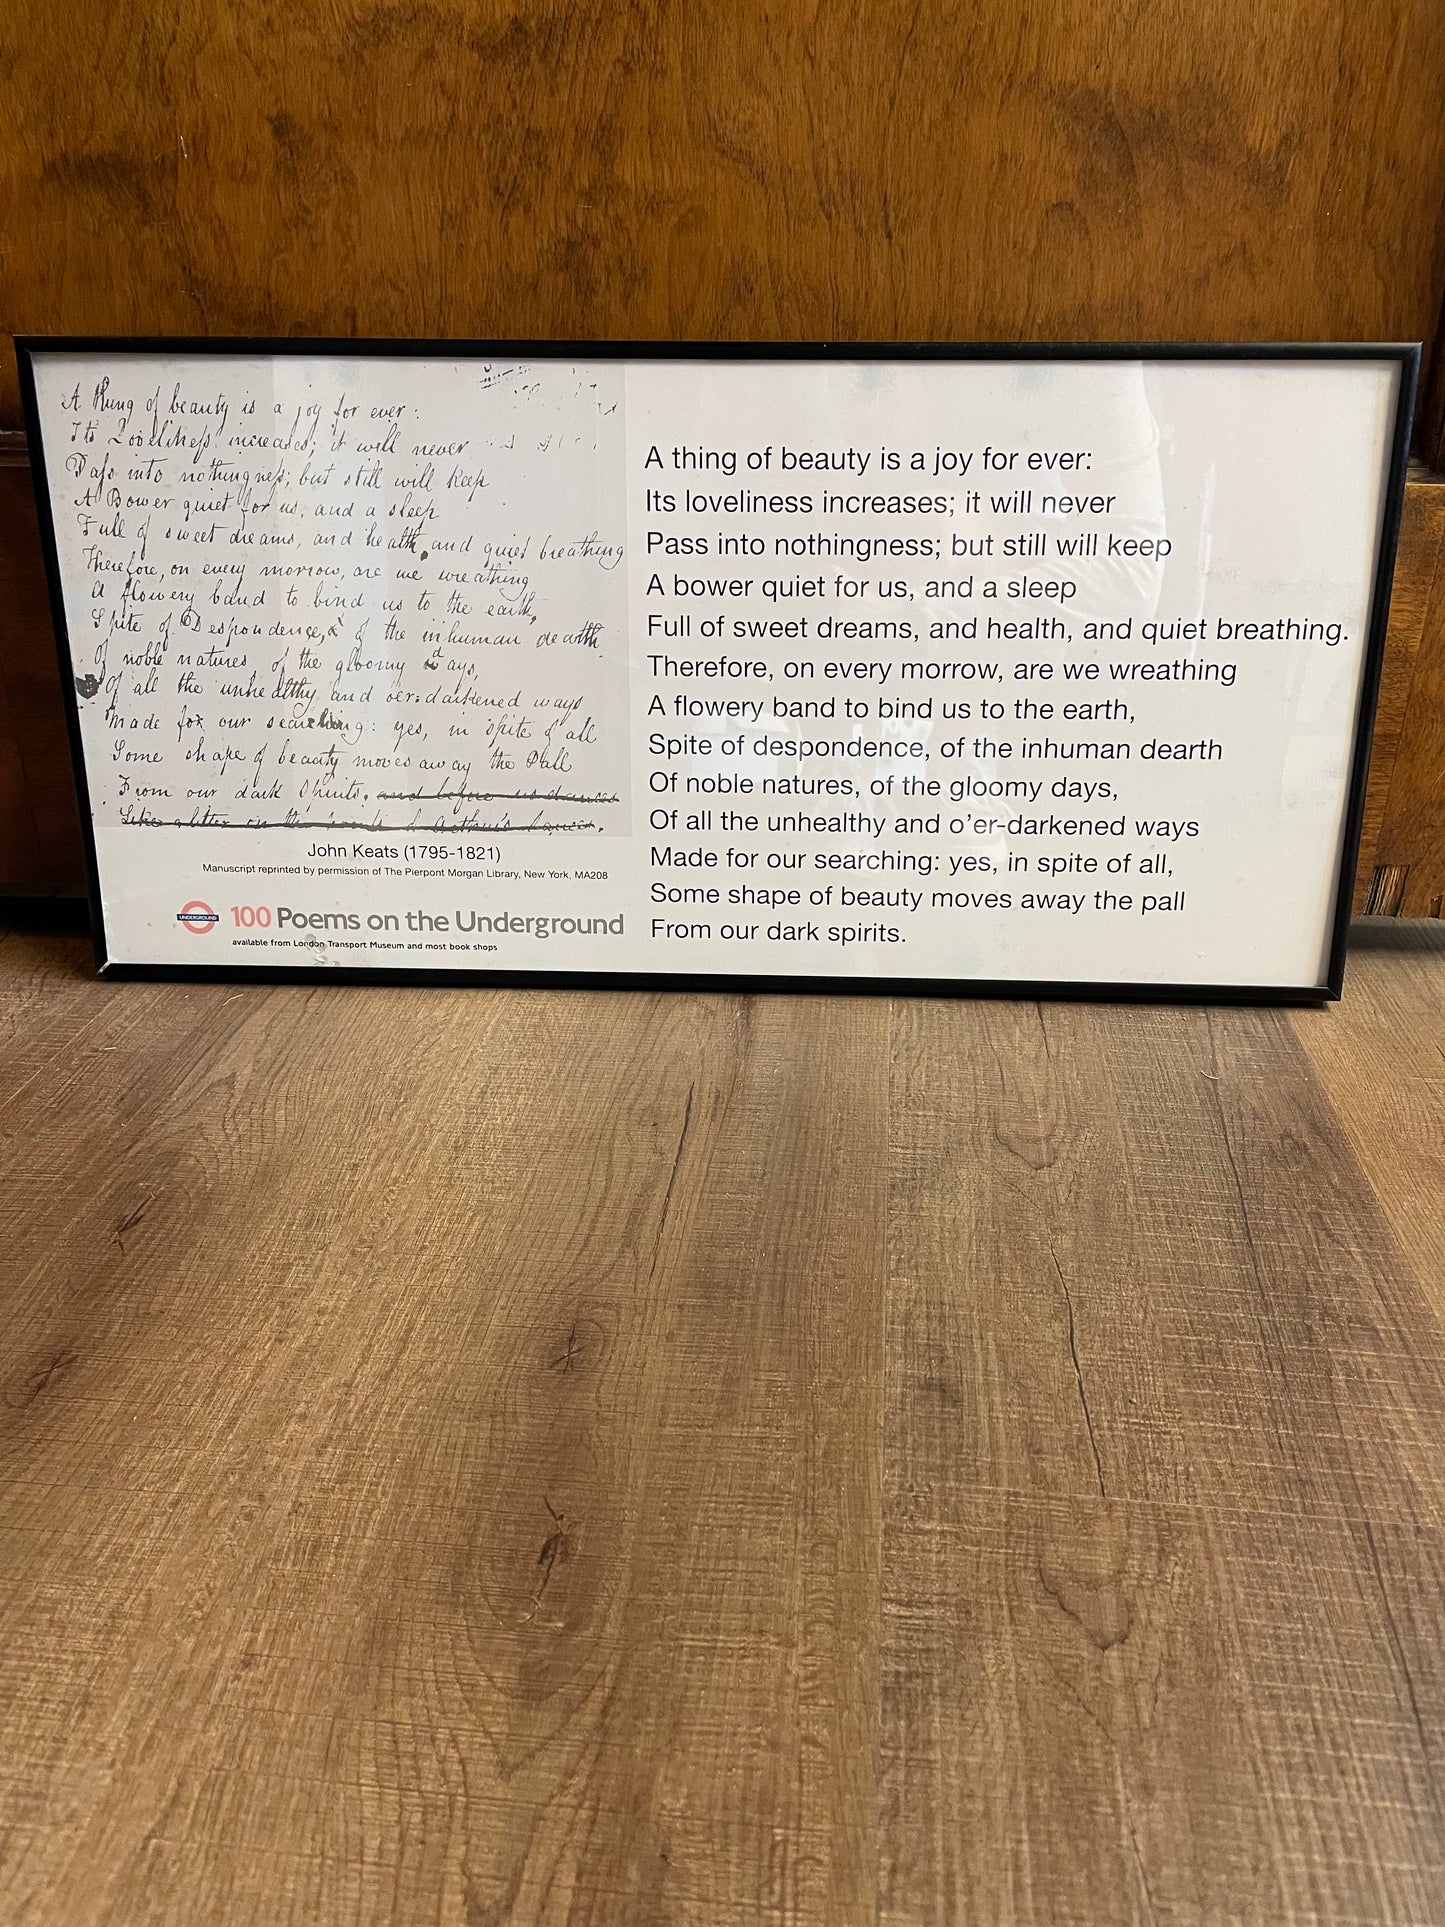 A thing of beauty is a joy for ever:
Its Loveliness increases; it will never
Pass into nothingness; but still will keep
A Bower quiet for us, and a sleep
Full of sweet dreams, and health, and quiet breathing
Therefore, on every morrow, are we wreathing
A flowery band to bind us to the earth,
Spite of Despondence, of the inhuman dearth
Of noble natures, of the gloomy days,
Of all the unhealthy and o'er-darkened ways
Made for our searching: yes, in spite of all
Some shape of beauty moves away the Pall
From our dark Spirits. and before us dances
Like glitter on the points of Arthur's Lances.
John Keats (1795-1821)
Manuscript reprinted by permission of The Pierpont Morgan Library, New York, MA208
UNDERGROUND
100 Poems on the Underground
available from London Transport Museum and most book shops
A thing of beauty is a joy for ever:
Its loveliness increases; it will never
Pass into nothingness; but still will keep
A bower quiet for us, and a sleep
Full of sweet dreams, and health, and quiet breathing.
Therefore, on every morrow, are we wreathing
A flowery band to bind us to the earth,
Spite of despondence, of the inhuman dearth
Of noble natures, of the gloomy days,
Of all the unhealthy and o'er-darkened ways
Made for our searching: yes, in spite of all,
Some shape of beauty moves away the pall
From our dark spirits.